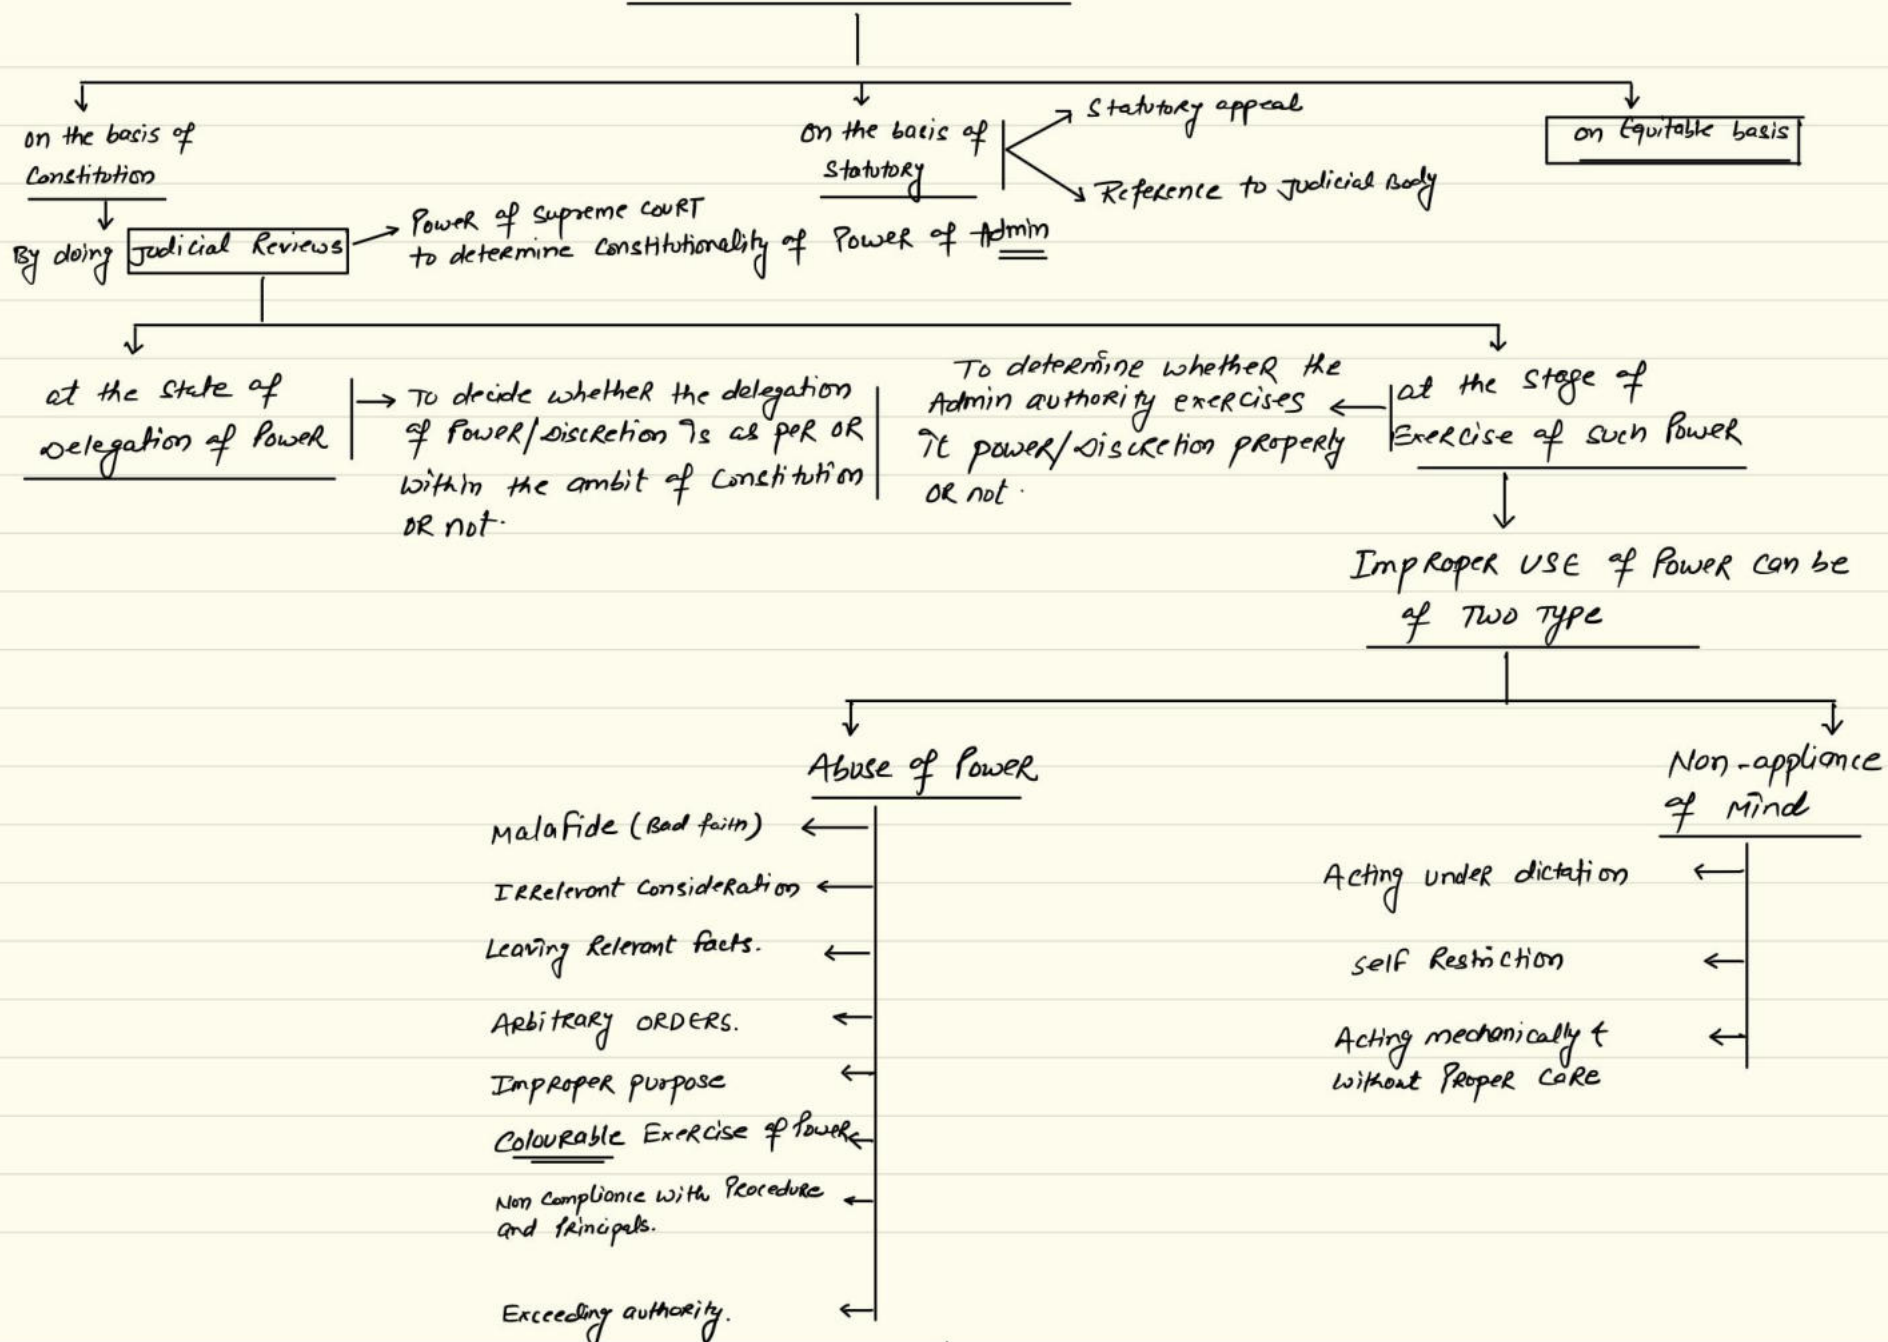 on the basis of
Constitution
By doing Judicial Reviews
Power of Supreme COURT
to determine Constitutionality of Power of Admin
on the basis of
Statutory
Statutory appeal
Reference to Judicial Body
on Equitable basis
at the State of
Delegation of Power
To decide whether the delegation
of Power/Discretion is as per OR
within the ambit of Constitution
OR not.
To determine whether the
Admin authority exercises
it power/Discretion properly
OR not.
at the stage of
Exercise of such Power
Improper USE of Power can be
of Two Type
Abuse of Power
Malafide (Bad faith)
Irrelevant Consideration
Leaving Relevant facts.
Arbitrary ORDERS.
Improper purpose
Colourable Exercise of Power
Non Compliance with Procedure
and Principals.
Exceeding authority.
Non-appliance
of Mind
Acting under dictation
Self Restriction
Acting mechanically &
without Proper Care